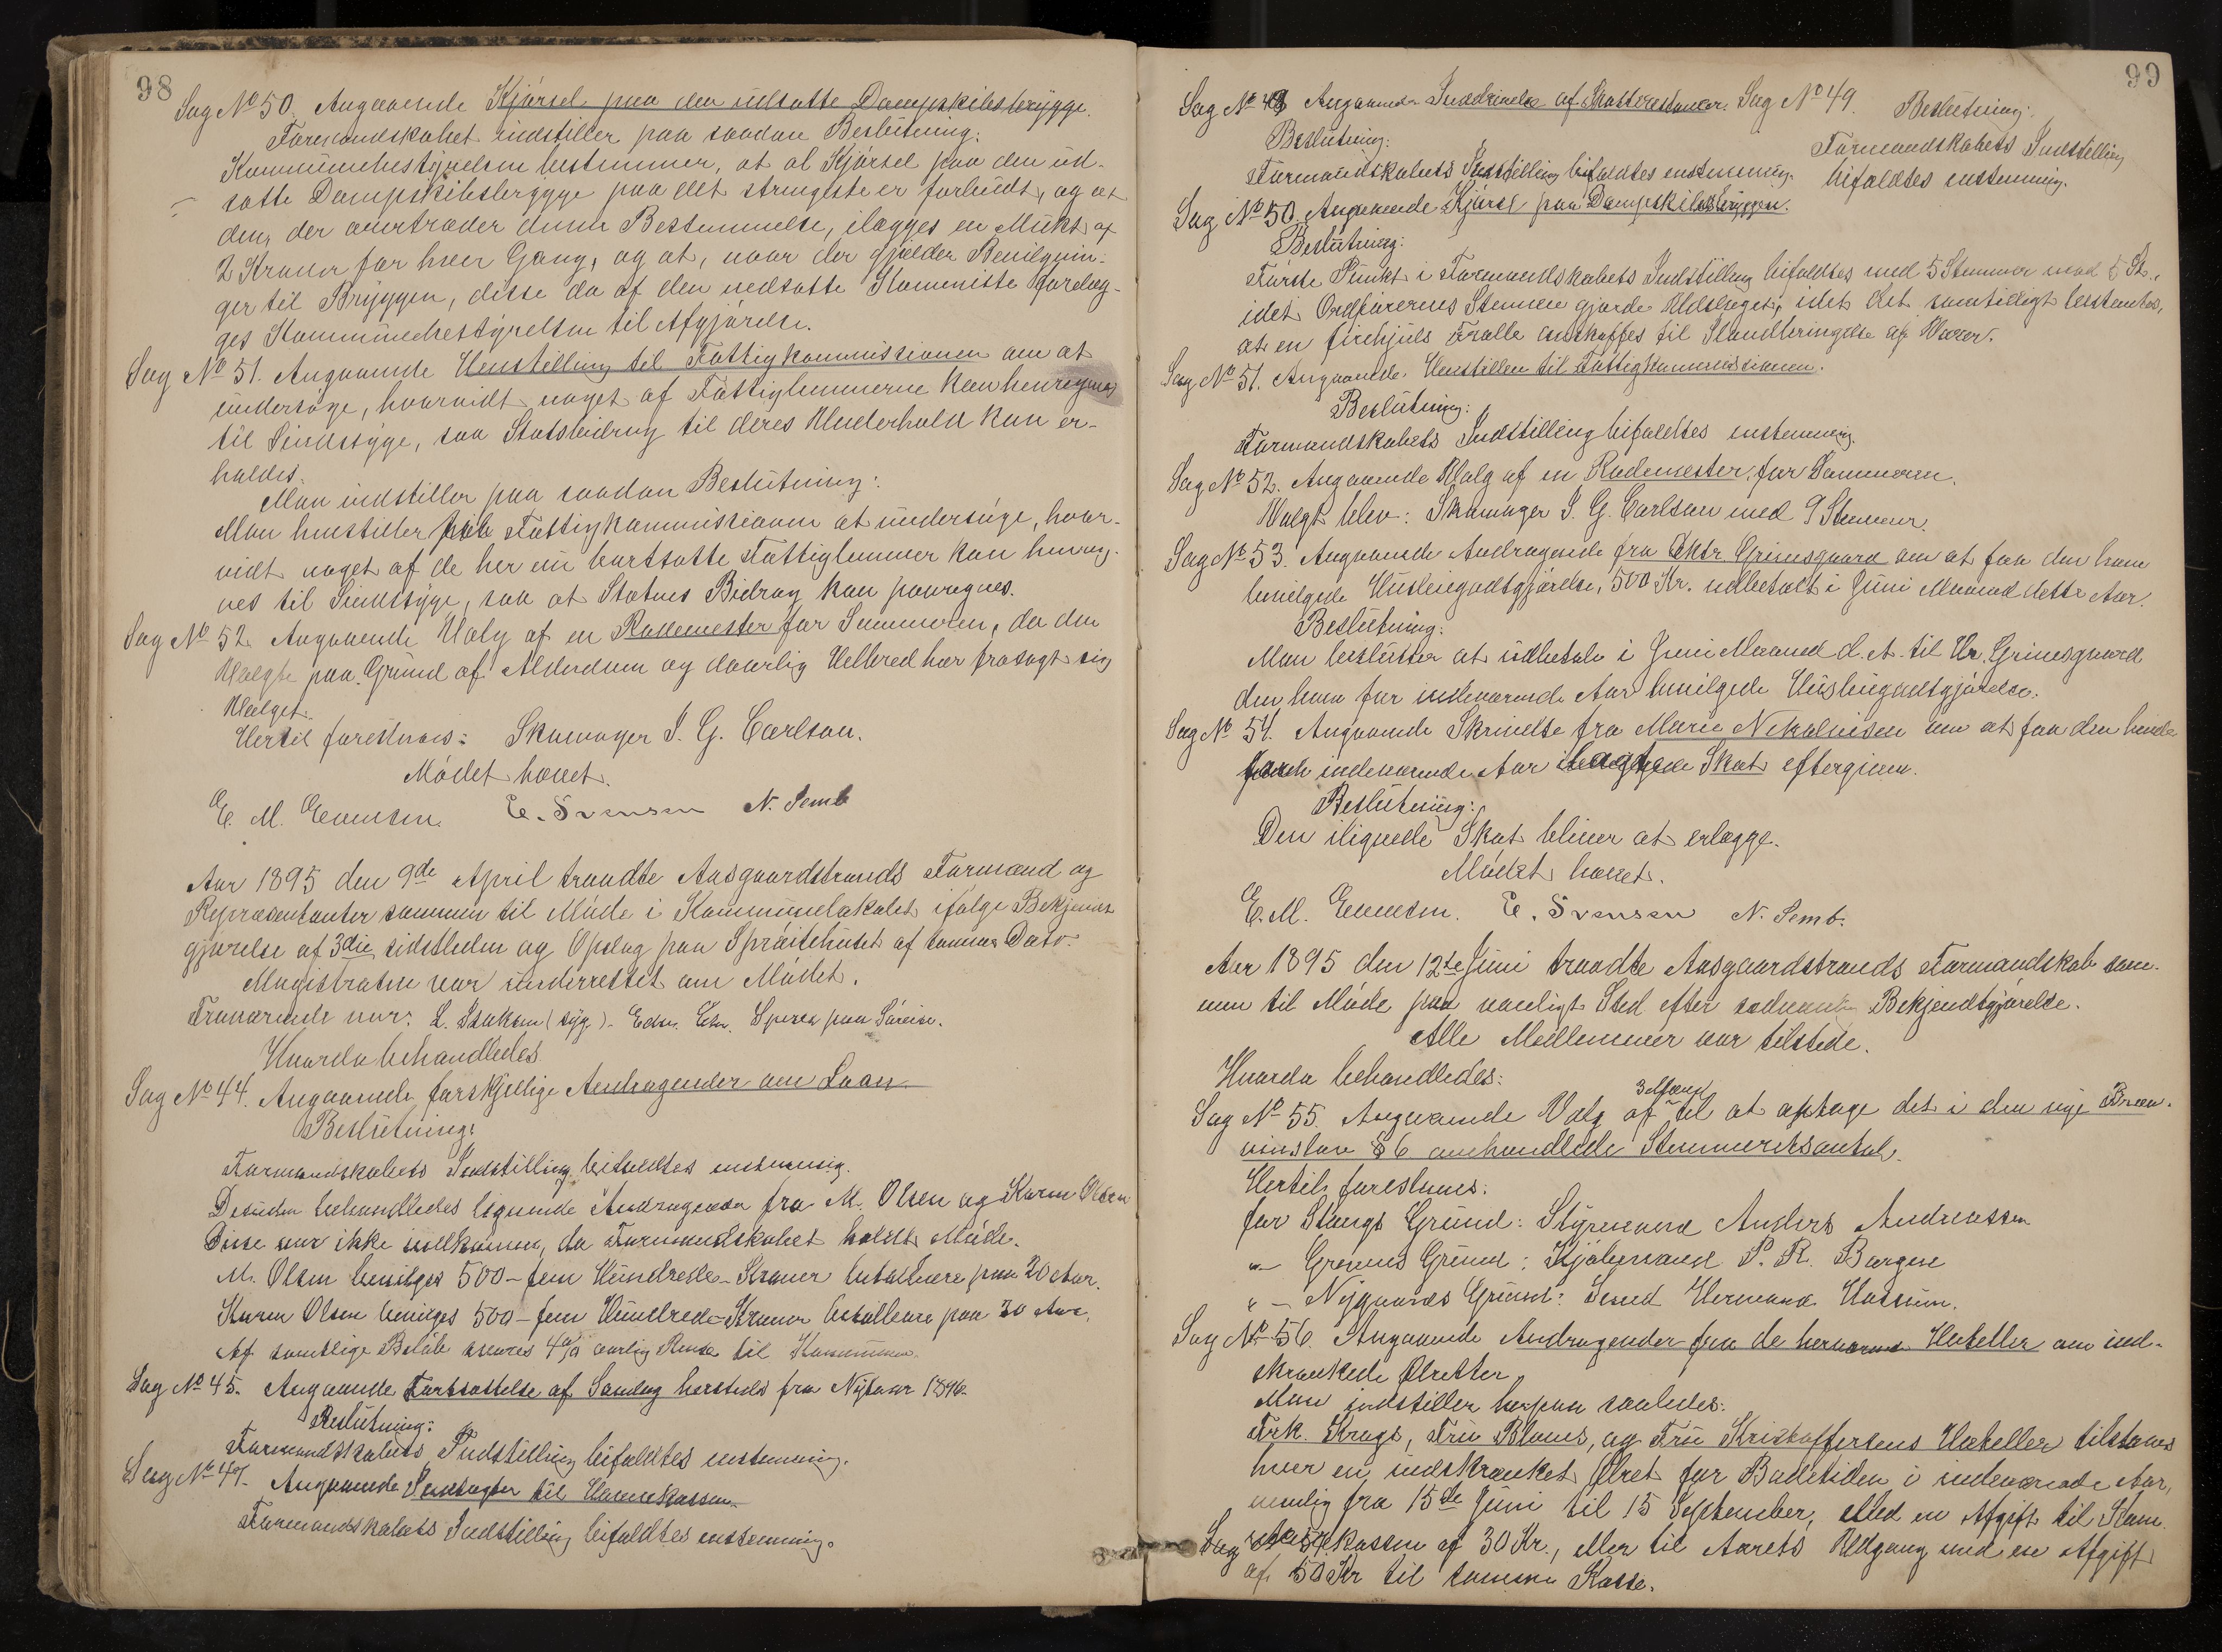 98
Sag No 50. Angaaende Kjørsel paa den udsatte Dampskibsbrygge.
Formandskabet indstiller paa saadan Beslutning:
Kommunebestyrelsen bestemmer, at al Kjørsel paa den ud-
satte Dampskibsbrygge paa det strængeste er forbudt, og at
den, der overtræder denne Bestemmelse, ilægges en Mulkt af
2 Kroner for hver Gang, og at, naar der gjælder Bevilgnin-
ger til Bryggen, disse da af den nedsatte Komite forelæg-
ges Kommunebestyrelsen til Afgjørelse.
Sag No 51. Angaaende Henstilling til Fattigkommissionen om at
undersøge, hvorvidt noget af Fattiglemmerne kan henregnes
til Sindssyge, saa Statsbidrag til deres Underhold kan er-
holdes.
Man indstiller paa saadan Beslutning:
Man henstiller til Fattigkommissionen at undersøge, hvor-
vidt noget af de her nu bortsatte Fattiglemmer kan henreg-
nes til Sindssyge, saa at Statens Bidrag kan paaregnes.
Sag No 52. Angaaende Valg af en Rodemester for Sommeren, da den
Valgte paa Grund af Alderdom og daarlig Helbred har frasagt sig
Valget.
Hertil foreslaaes: Skomager J. G. Carlson.
Mødet hævet.
E. M. Evensen. E. Svensen N. Semb
Aar 1895 den 9de April traadte Aasgaardstrands Formænd og
Repræsentanter sammen til Møde i Kommunelokalet ifølge Bekjendt
gjørelse af 3die sidstleden og Opslag paa Sprøitehuset af samme Dato.
Magistraten var underrettet om Mødet.
Fraværende var: L. Isaksen (syg). Edv. Ehr. paa Søreise.
Hvorda behandledes
Sag No 44. Angaaende forskjellige Andragender om Laan
Beslutning:
Formandskabets Indstilling bifaldtes enstemmig.
Desuden behandledes lignende Andragender fra M. Olsen og Karen Olsen
Disse var ikke indkomne, da Formandskabet holdt Møde.
M. Olsen bevilges 500 - fem Hundrede - Kroner betalbare paa 20 Aar.
Karen Olsen bevilges 500 - fem Hundrede - Kroner betalbare paa 20 Aar.
Af samtlige Beløb svares 4% aarlig Rente til Kommunen.
Sag No 45. Angaaende Fortsættelse af Samlag hersteds fra Nytaar 1896.
Beslutning:
Formandskabets Indstilling bifaldtes enstemmig.
Sag No 47. Angaaende Indtægter til Havnekassen.
Formandskabets Indstilling bifaldtes enstemmig.
99
Sag No 48 Angaaende Inddrivelse af Skatterestancer. Sag No 49. Beslutning:
Beslutning: Formandskabets Indstilling
Formandskabets Indstilling bifaldtes enstemmig. bifaldtes enstemmig.
Sag No 50. Angaaende Kjørsel paa Dampskibsbryggen.
Beslutning:
Første Punkt i Formandskabets Indstilling bifaldtes med 5 Stemmer mod 5 St.,
idet Ordførerens Stemme gjorde Udslaget, idet det samtidigt bestemtes,
at en firehjuls Tralle anskaffes til Ilandbringelse af Varer.
Sag No 51. Angaaende Henstillen til Fattigkommissionen.
Beslutning:
Formandskabets Indstilling bifaldtes enstemmig.
Sag No 52. Angaaende Valg af en Rodemester for Sommeren.
Valgt blev: Skomager J. G. Carlson med 9 Stemmer.
Sag No 53. Angaaende Andragende fra Grimsgaard om at faa den ham
bevilgede Husleiegodtgjørelse, 500 Kr. udbetalt i Juni Maaned dette Aar.
Beslutning:
Man beslutter at udbetale i Juni Maaned d. A. til Hr. Grimsgaard
den ham for indeværende Aar bevilgede Husleiegodtgjørelse.
Sag No 54. Angaaende Skrivelse fra Marie Nikolaisen om at faa den hende
for indeværende Aar ilagte Skat eftergiven.
Beslutning:
Den ilignede Skat bliver at erlægge.
Mødet hævet.
E. M. Evensen. E. Svensen N. Semb.
Aar 1895 den 12te Juni traadte Aasgaardstrands Formandskab sam-
men til Møde paa vanligt Sted efter sedvanlig Bekjendtgjørelse.
Alle Medlemmer var tilstede.
Hvorda behandledes:
3 Mænd
Sag No 55. Angaaende Valg af til at optage det i den nye Bræn-
vinslov § 6 omhandlede Stemmeretsantal.
Hertil foreslaaes:
for Stangs Grund: Styrmand Anders Andreassen
" - Grevens Grund: Kjøbmand P. R. Borgen
" - Nygaards Grund: Hermand Hassum.
Sag No 56. Angaaende Andragender fra de herværende Hoteller om ind-
skrænkede Ølretter
Man indstiller herpaa saaledes:
Frk. Krags, Fru Bloms, og Fru Kristoffersens Hoteller tilstaaes
hver en indskrænket Ølret for Badetiden i indeværende Aar,
nemlig fra 15de Juni til 15 September, Mod en Afgift til Kom-
Sag No 57. kassen af 30 Kr., eller til Aarets Udgang mod en Afgift
af 50 Kr til samme Kasse.